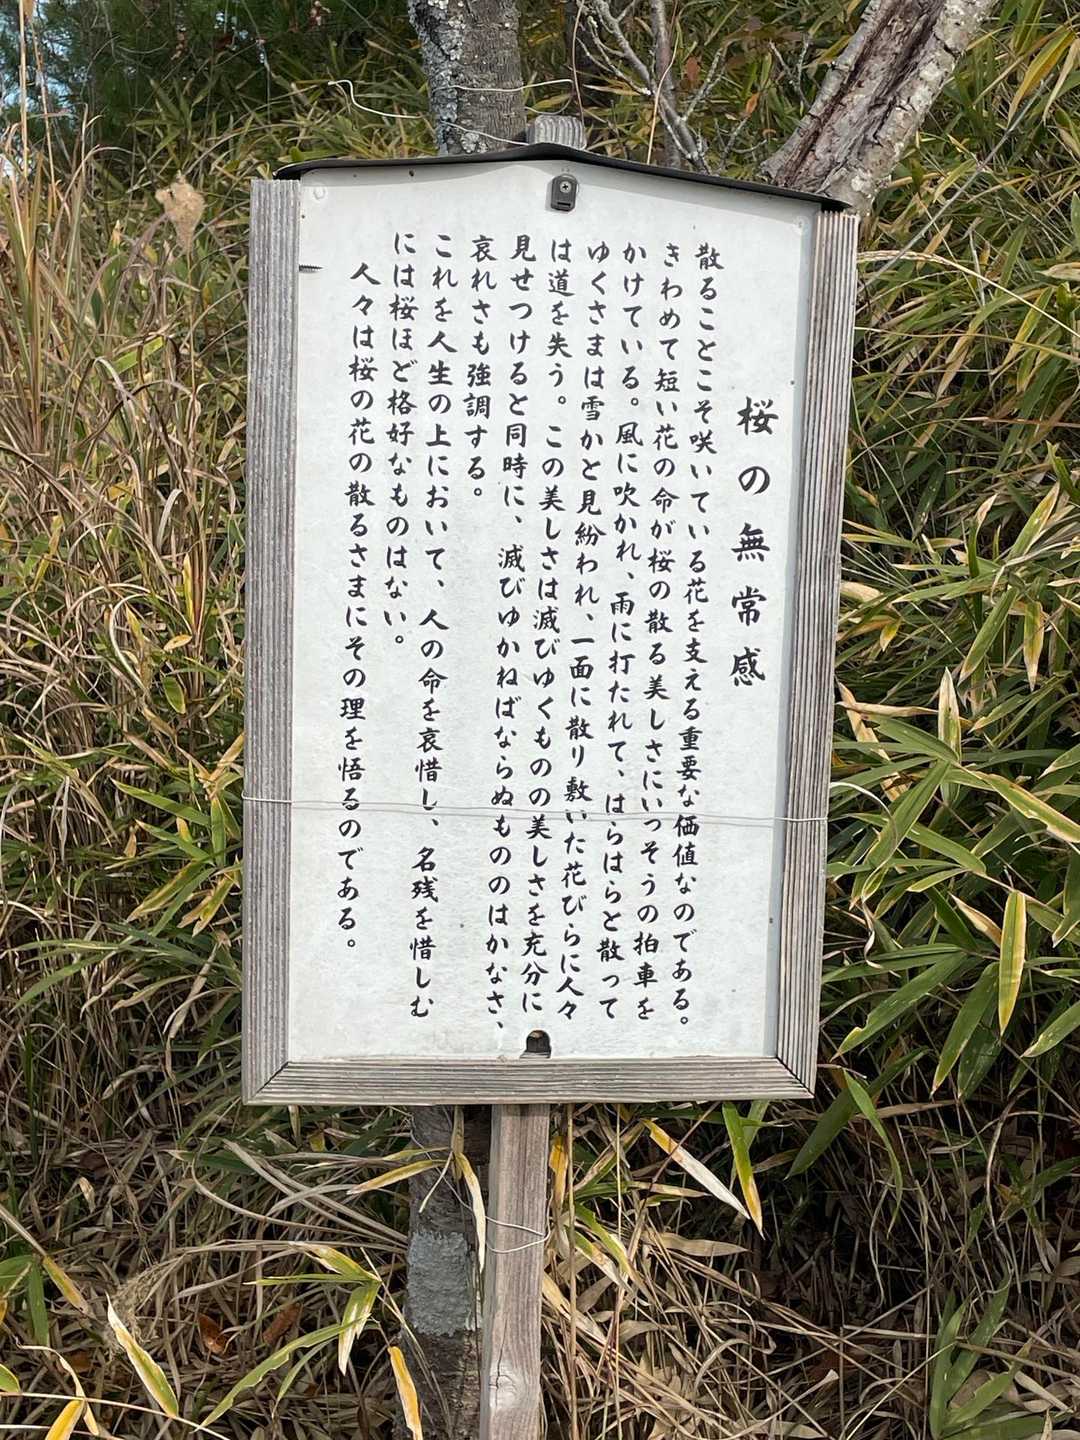 桜の無常感
散ることこそ咲いている花を支える重要な価値なのである。
きわめて短い花の命が桜の散る美しさにいっそうの拍車を
かけている。風に吹かれ、雨に打たれて、はらはらと散って
ゆくさまは雪かと見紛われ、一面に散り敷いた花びらに人々
は道を失う。この美しさは滅びゆくものの美しさを充分に
見せつけると同時に、滅びゆかねばならぬもののはかなさ、
哀れさも強調する。
これを人生の上において、人の命を哀惜し、名残を惜しむ
には桜ほど格好なものはない。
人々は桜の花の散るさまにその理を悟るのである。